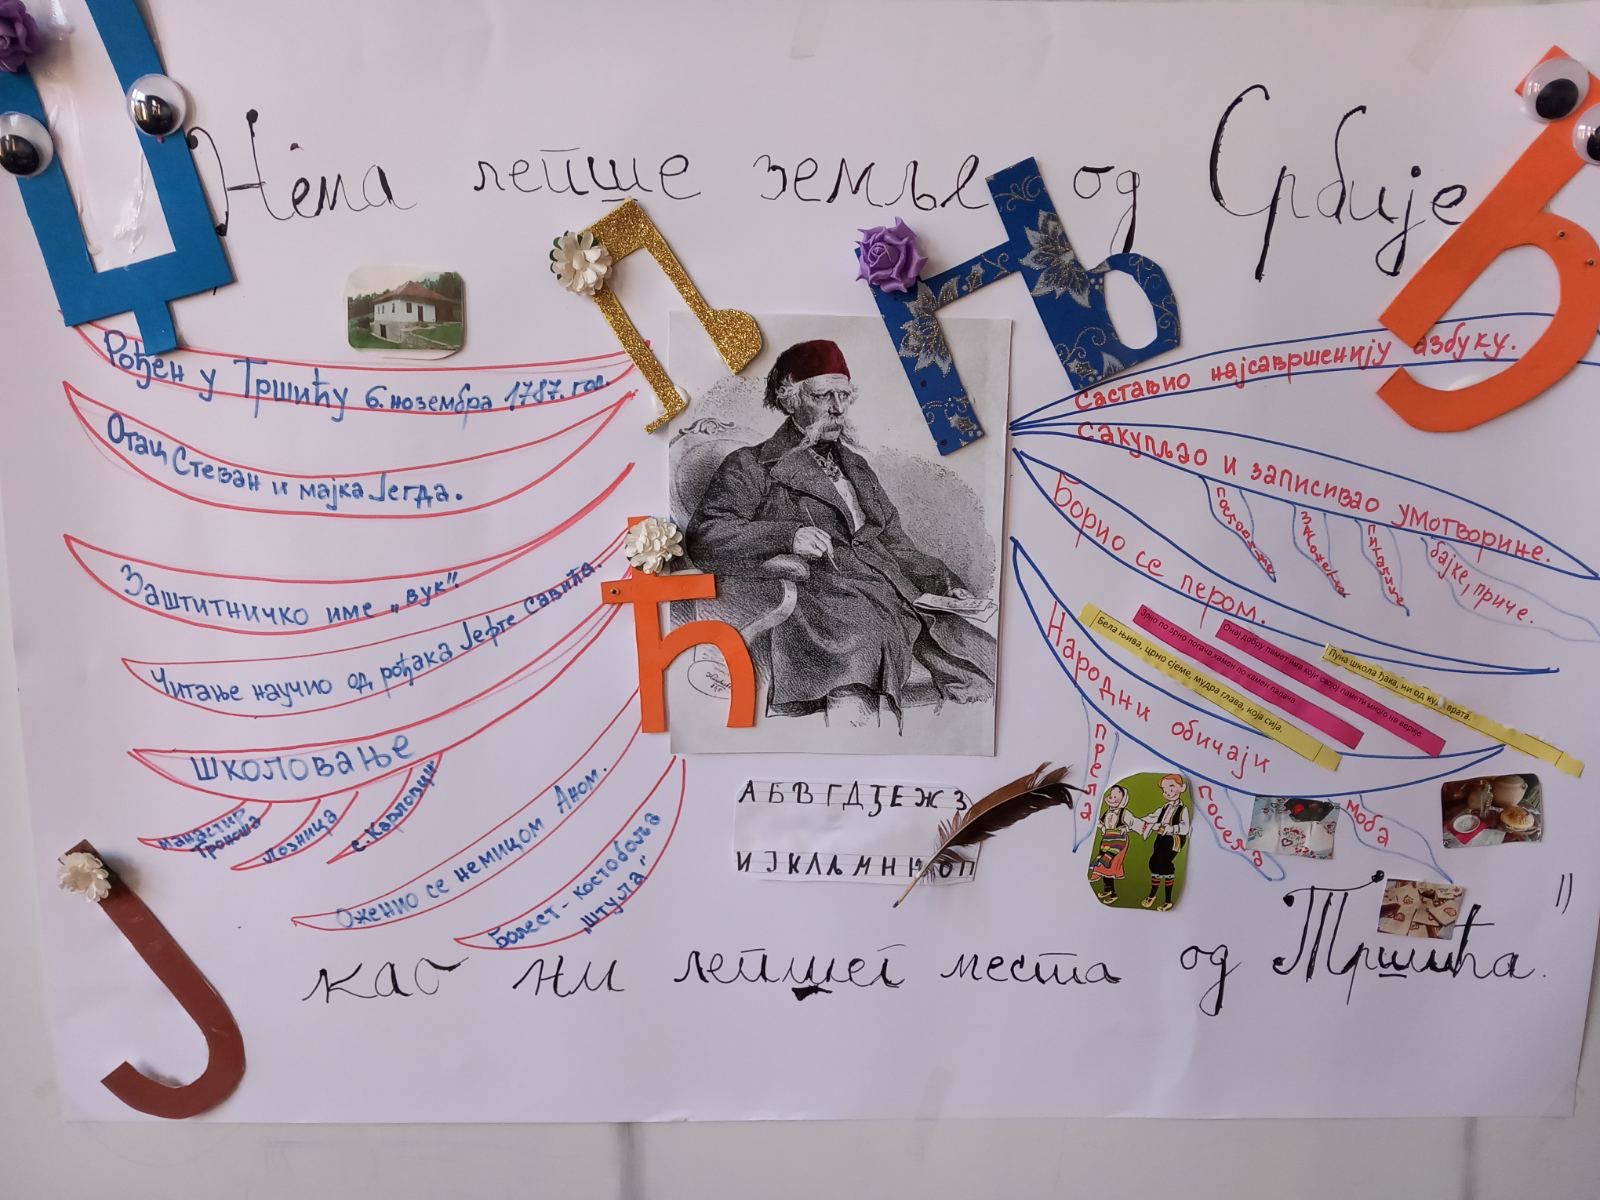 Џ
Нема лепше земље од Србије
Љ
Њ
Ђ
Рођен у Тршићу 6. новембра 1787. год.
Отац Стеван и мајка Јегда.
Заштитничко име „вук”.
Читање научио од рођака Јефте Савића.
школовање
манастир Троноша
лозница
с. Карловци
Оженио се немицом Аном.
Болест - костобоља
„штула”
Ћ
Ј
Саставио најсавршенију азбуку.
сакупљао и записивао умотворине.
пословице
загонетке
питалице
бајке, приче.
Борио се пером.
Народни обичаји
Бела њива, црно сјеме, мудра глава, која сија.
Зрно по зрно погача камен по камен палача
Онај добру памет има који својој памети много не верује.
Пуна школа ђака, ни од куд врата.
прела
посела
моба
А Б В Г Д Ђ Е Ж З
И Ј К Л Љ М Н Њ О П
као ни лепшег места од Тршића.”